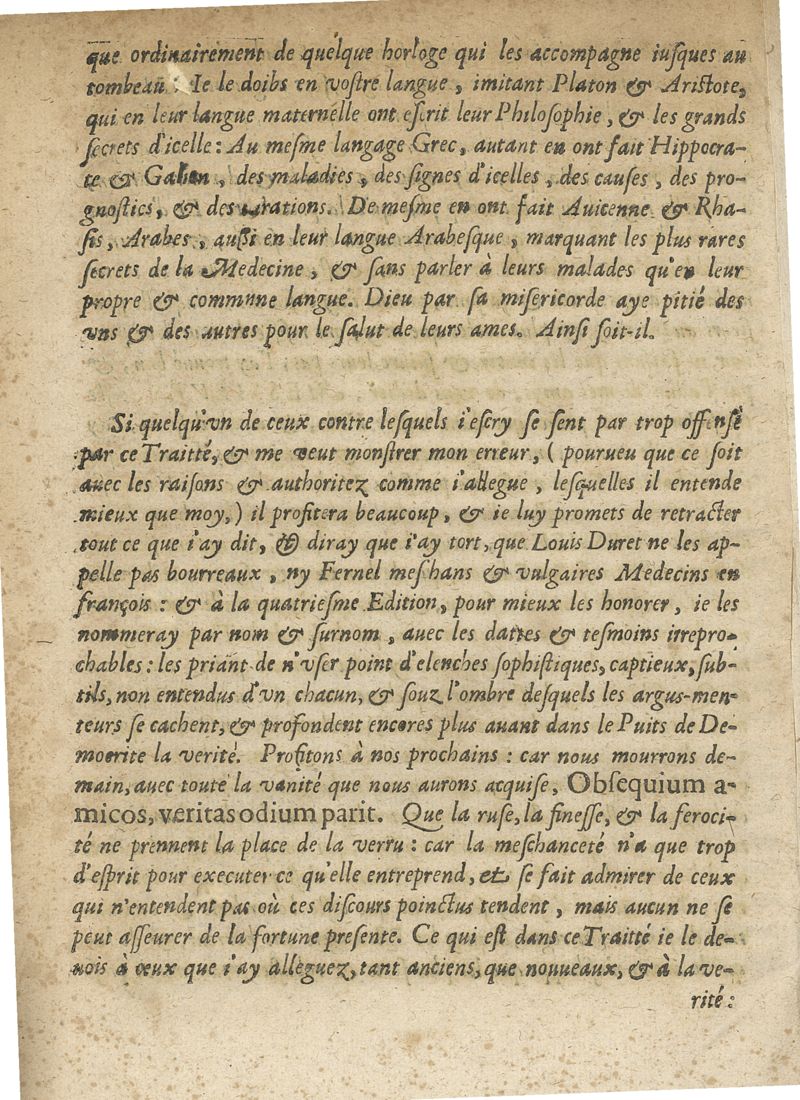 que ordinairement de quelque horloge qui les accompagne iuſques au
tombeau : Ie le doibs en voſtre langue, imitant Platon & Ariſtote,
qui en leur langue maternelle ont eſcrit leur Philoſophie, & les grands
ſecrets d'icelle : Au meſme langage Grec, autant en ont fait Hippocra-
te & Galien, des maladies, des ſignes d'icelles, des cauſes, des pro-
gnoſtics, & des curations. De meſme en ont fait Auicenne & Rha-
ſis, Arabes, auſſi en leur langue Arabeſque, marquant les plus rares
ſecrets de la Medecine, & ſans parler à leurs malades qu'en leur
propre & commune langue. Dieu par ſa miſericorde aye pitié des
vns & des autres pour le ſalut de leurs ames. Ainſi ſoit-il.
Si quelqu'vn de ceux contre leſquels i'eſcry ſe ſent par trop offenſé
par ce Traitté, & me veut monſtrer mon erreur, ( pourueu que ce ſoit
auec les raiſons & authoritez comme i'allegue, leſquelles il entende
mieux que moy,) il profitera beaucoup, & ie luy promets de retracter
tout ce que i'ay dit, & diray que i'ay tort, que Louis Duret ne les ap-
pelle pas bourreaux, ny Fernel meſhans & vulgaires Medecins en
françois : & à la quatrieſme Edition, pour mieux les honorer, ie les
nommeray par nom & ſurnom, auec les dattes & teſmoins irrepro-
chables : les priant de n'vſer point d'elenches ſophiſtiques, captieux, ſub-
tils, non entendus d'vn chacun, & ſouz l'ombre deſquels les argus-men-
teurs ſe cachent, & profondent encores plus auant dans le Puits de De-
mocrite la verité. Profitons à nos prochains : car nous mourrons de-
main, auec toute la vanité que nous aurons acquiſe, Obſequium a-
micos, veritas odium parit. Que la ruſe, la fineſſe, & la feroci-
té ne prennent la place de la vertu : car la meſchanceté n'a que trop
d'eſprit pour executer ce qu'elle entreprend, & ſe fait admirer de ceux
qui n'entendent pas où ces diſcours poinctus tendent, mais aucun ne ſe
peut aſſeurer de la fortune preſente. Ce qui eſt dans ce Traitté ie le de-
uois à ceux que i'ay alleguez, tant anciens, que nouueaux, & à la ve-
rité :